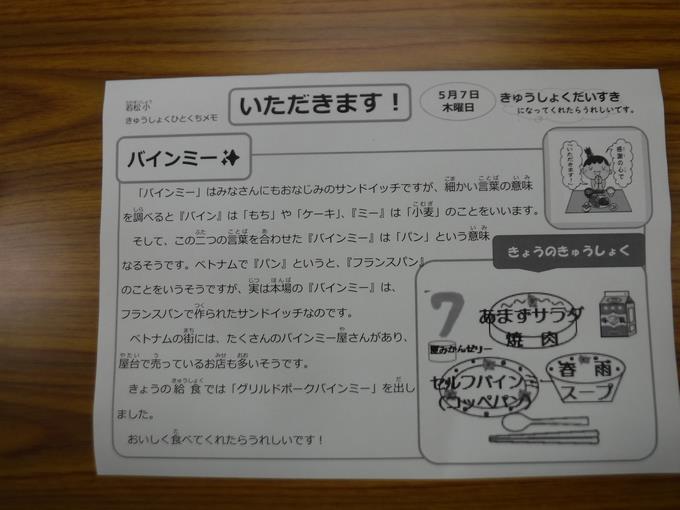 若松小
きゅうしょくひとくちメモ
いただきます！
5月7日
木曜日
きゅうしょくだいすき
になってくれたらうれしいです。
バインミー
感謝の心で
「いただきます！」
「バインミー」はみなさんにもおなじみのサンドイッチですが、細かい言葉の意味
を調べると『バイン』は「もち」や「ケーキ」、『ミー』は「小麦」のことをいいます。
そして、この二つの言葉を合わせた『バインミー』は「パン」という意味
なるそうです。ベトナムで『パン』というと、『フランスパン』
のことをいうそうですが、実は本場の『バインミー』は、
フランスパンで作られたサンドイッチなのです。
ベトナムの街には、たくさんのバインミー屋さんがあり、
屋台で売っているお店も多いそうです。
きょうの給食では「グリルドポークバインミー」を出し
ました。
おいしく食べてくれたらうれしいです！
きょうのきゅうしょく
7
あまずサラダ
焼肉
夏みかんゼリー
セルフバインミー
（コッペパン）
春雨
スープ